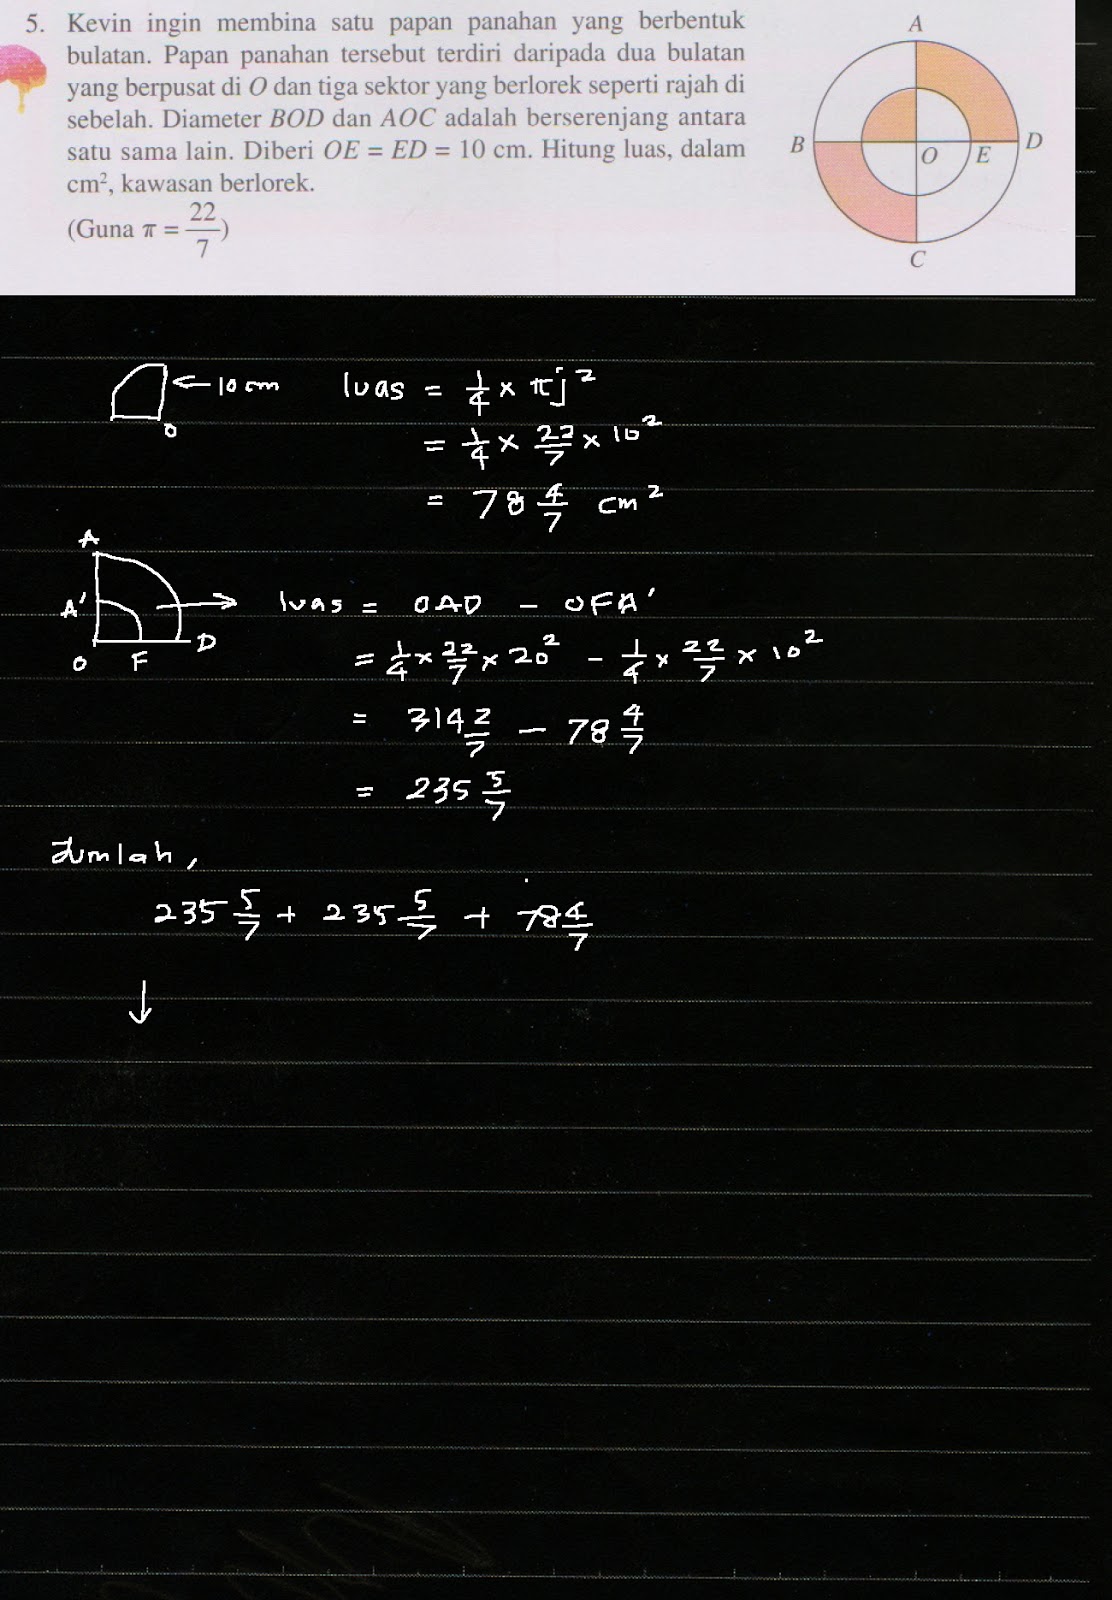 5. Kevin ingin membina satu papan panahan yang berbentuk
bulatan. Papan panahan tersebut terdiri daripada dua bulatan
yang berpusat di O dan tiga sektor yang berlorek seperti rajah di
sebelah. Diameter BOD dan AOC adalah berserenjang antara
satu sama lain. Diberi OE = ED = 10 cm. Hitung luas, dalam
cm², kawasan berlorek.
(Guna π = 22/7)
A
B
O
E
D
C
← 10 cm
O
luas = 1/4 × πj²
= 1/4 × 22/7 × 10²
= 78 4/7 cm²
A
A'
O
F
D
→ luas = OAD - OFA'
= 1/4 × 22/7 × 20² - 1/4 × 22/7 × 10²
= 314 2/7 - 78 4/7
= 235 5/7
Jumlah,
235 5/7 + 235 5/7 + 78 4/7
↓